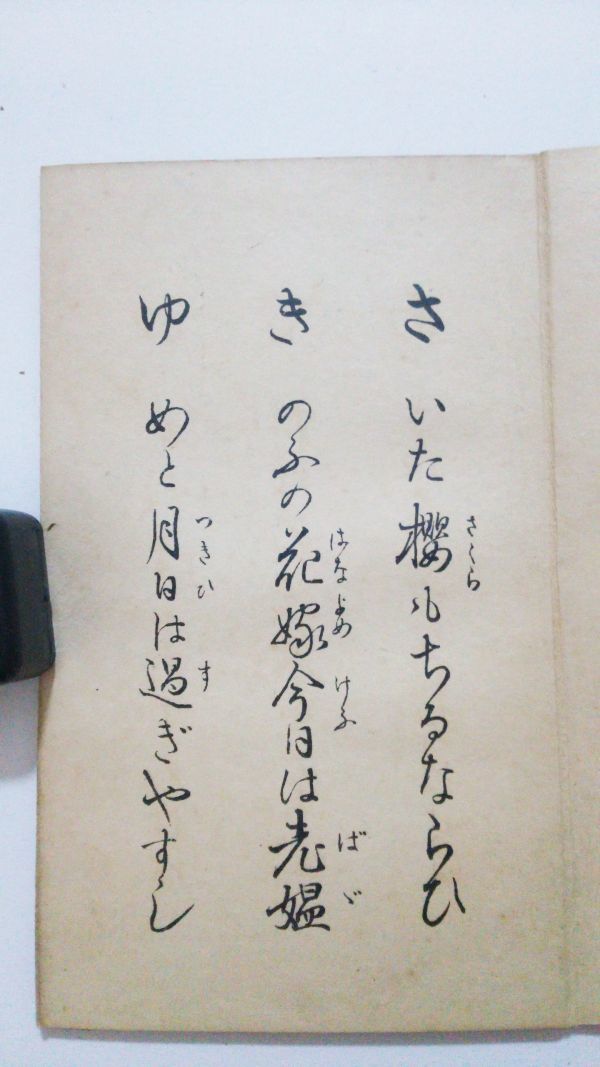 さ いた櫻もちるならひ
さくら
き のふの花嫁今日は老媼
はなよめ けふ ばゞ
ゆ めと月日は過ぎやすし
つきひ す